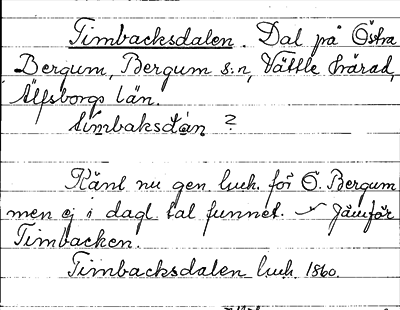 Timbacksdalen. Dal på Östra
Bergum, Bergum s:n, Vättle härad,
Älfsborgs län.
?
Känt nu gen. luh. för Ö. Bergum
men ej i dagl. tal funnet. Jämför
Timbacken.
Timbacksdalen luh. 1860.